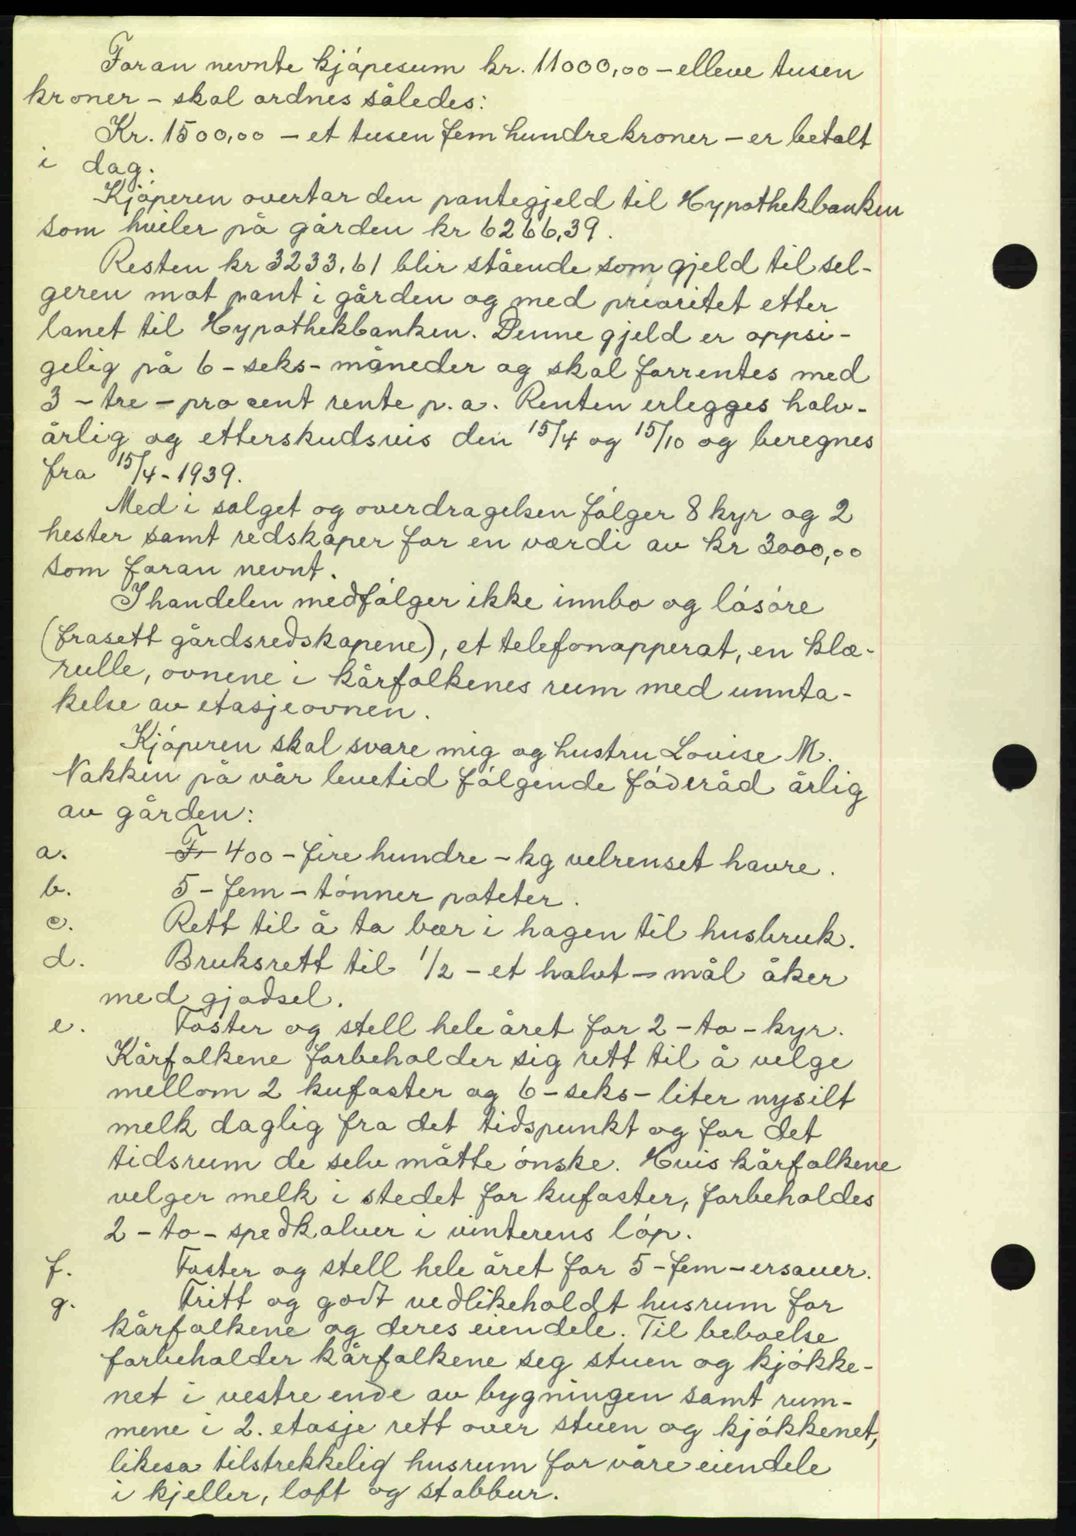 Foran nevnte kjøpesum kr. 11000,00 – elleve tusen
kroner – skal ordnes således:
Kr. 1500,00 – et tusen fem hundre kroner – er betalt
i dag.
Kjøperen overtar den pantegjeld til Hypothekbanken
som hviler på gården kr 6266,39.
Resten kr 3233,61 blir stående som gjeld til sel-
geren mot pant i gården og med prioritet etter
lånet til Hypothekbanken. Denne gjeld er oppsi-
gelig på 6 – seks – måneder og skal forrentes med
3 – tre – procent rente p.a. Renten erlegges halv-
årlig og etterskudsvis den 15/4 og 15/10 og beregnes
fra 15/4 - 1939.
Med i salget og overdragelsen følger 8 kyr og 2
hester samt redskaper for en værdi av kr 3000,00
som foran nevnt.
I handelen medfølger ikke innbo og løsøre
(frasett gårdsredskapene), et telefonapperat, en klæ-
rulle, ovnene i kårfolkenes rum med unnta-
kelse av etasjeovnen.
Kjøperen skal svare mig og hustru Lovise M.
Nakken på vår levetid følgende føderåd årlig
av gården:
a. F. 400 – fire hundre – kg velrenset havre.
b. 5 – fem – tønner poteter.
c. Rett til å ta bær i hagen til husbruk.
d. Bruksrett til 1/2 – et halvt – mål åker
med gjødsel.
e. Foster og stell hele året for 2 – to – kyr.
Kårfolkene forbeholder sig rett til å velge
mellom 2 kufoster og 6 – seks – liter nysilt
melk daglig fra det tidspunkt og for det
tidsrum de selv måtte ønske. Hvis kårfolkene
velger melk i stedet for kufoster, forbeholdes
2 – to – spedkalver i vinterens løp.
f. Foster og stell hele året for 5 – fem – ersauer.
g. Fritt og godt vedlikeholdt husrum for
kårfolkene og deres eiendele. Til beboelse
forbeholder kårfolkene seg stuen og kjøkke-
net i vestre ende av bygningen samt rum-
mene i 2. etasje rett over stuen og kjøkkenet,
likesa tilstrekkelig husrum for våre eiendele
i kjeller, loft og stabbur.